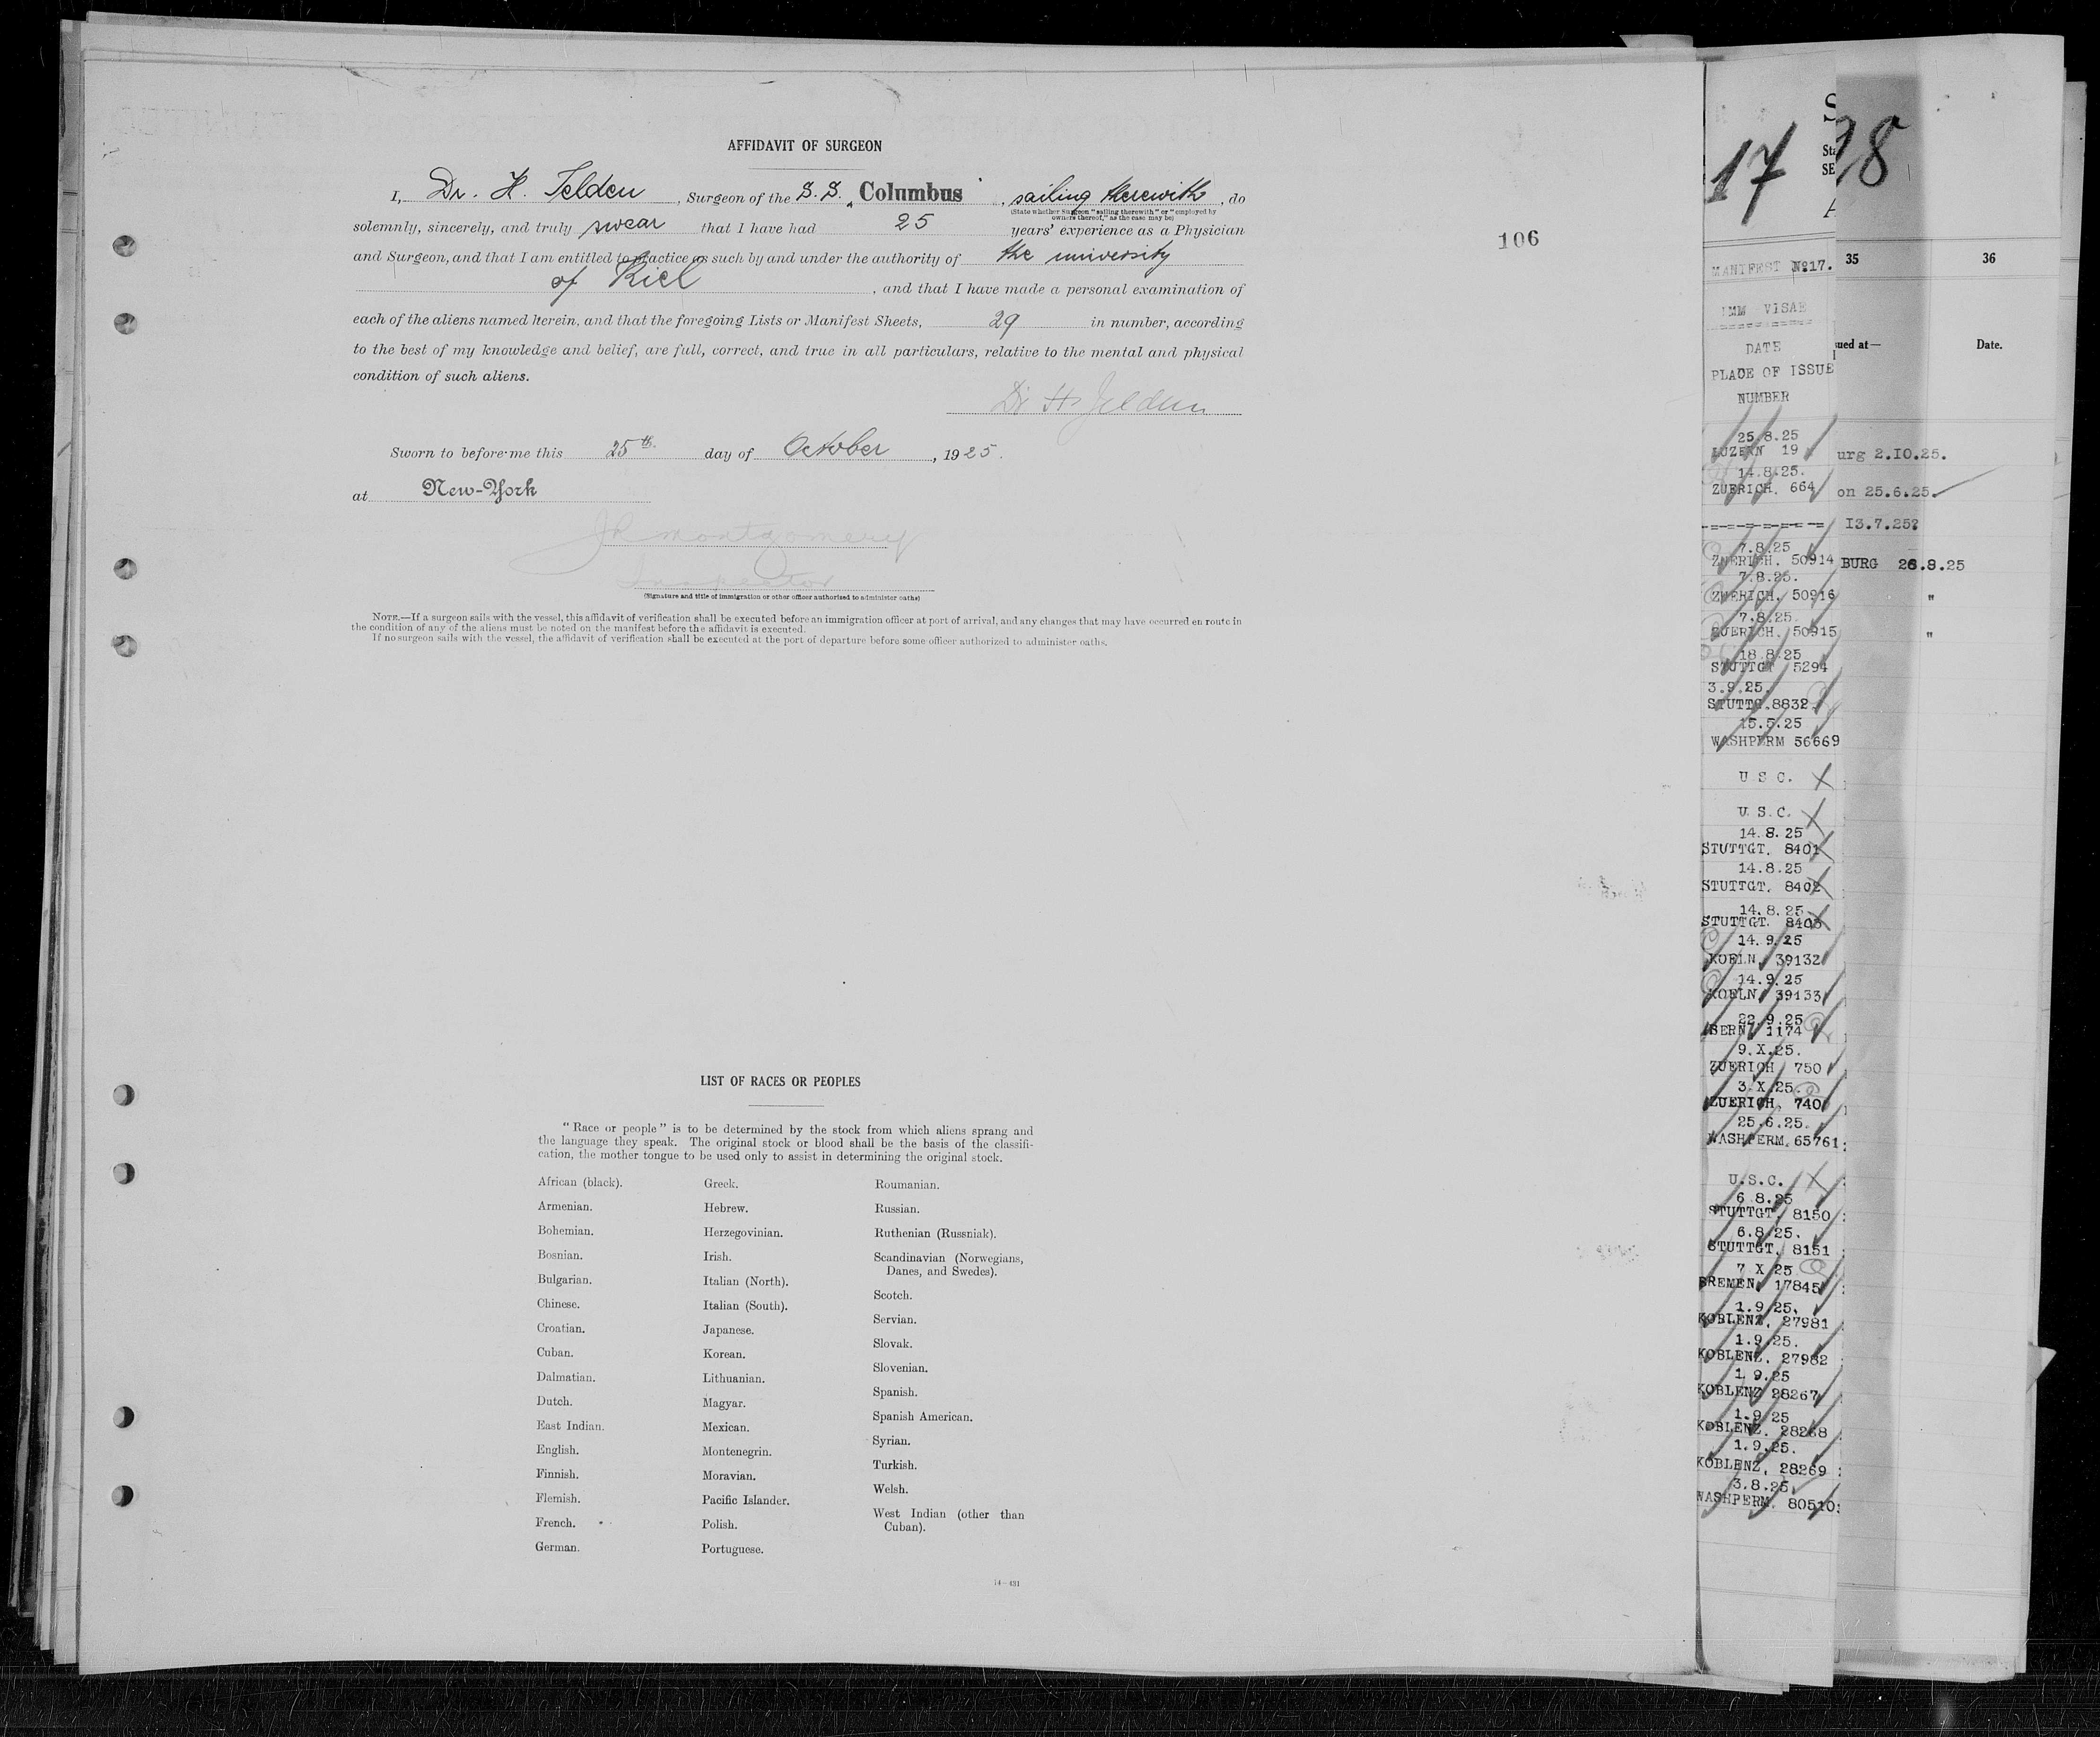 AFFIDAVIT OF SURGEON
I, Dr. H. Felden, Surgeon of the S.S. „Columbus", sailing therewith, do
(State whether Surgeon "sailing therewith" or "employed by owners thereof," as the case may be)
solemnly, sincerely, and truly swear that I have had 25 years' experience as a Physician
and Surgeon, and that I am entitled to practice as such by and under the authority of the university
of Kiel, and that I have made a personal examination of
each of the aliens named herein, and that the foregoing Lists or Manifest Sheets, 29 in number, according
to the best of my knowledge and belief, are full, correct, and true in all particulars, relative to the mental and physical
condition of such aliens.
Dr H Felden
Sworn to before me this 25th day of October, 1925.
at New-York
JR Montgomery
Inspector
(Signature and title of immigration or other officer authorized to administer oaths)
NOTE.—If a surgeon sails with the vessel, this affidavit of verification shall be executed before an immigration officer at port of arrival, and any changes that may have occurred en route in
the condition of any of the aliens must be noted on the manifest before the affidavit is executed.
If no surgeon sails with the vessel, the affidavit of verification shall be executed at the port of departure before some officer authorized to administer oaths.
106
LIST OF RACES OR PEOPLES
"Race or people" is to be determined by the stock from which aliens sprang and
the language they speak. The original stock or blood shall be the basis of the classifi-
cation, the mother tongue to be used only to assist in determining the original stock.
African (black).
Armenian.
Bohemian.
Bosnian.
Bulgarian.
Chinese.
Croatian.
Cuban.
Dalmatian.
Dutch.
East Indian.
English.
Finnish.
Flemish.
French.
German.
Greek.
Hebrew.
Herzegovinian.
Irish.
Italian (North).
Italian (South).
Japanese.
Korean.
Lithuanian.
Magyar.
Mexican.
Montenegrin.
Moravian.
Pacific Islander.
Polish.
Portuguese.
Roumanian.
Russian.
Ruthenian (Russniak).
Scandinavian (Norwegians,
Danes, and Swedes).
Scotch.
Servian.
Slovak.
Slovenian.
Spanish.
Spanish American.
Syrian.
Turkish.
Welsh.
West Indian (other than
Cuban).
14—431
17
MANIFEST №17.
IMM VISAE
DATE
PLACE OF ISSUE
NUMBER
25.8.25
LUZERN 19
14.8.25.
ZUERICH. 664
7.8.25
ZUERICH. 50914
7.8.25.
ZUERICH. 50916
7.8.25.
ZUERICH. 50915
18.8.25
STUTTGT 5294
3.9.25.
STUTTG.8832
15.5.25
WASHPERM 56669
U S C.
U.S.C.
14.8.25
STUTTGT. 8401
14.8.25
STUTTGT. 8402
14.8.25
STUTTGT. 8403
14.9.25
KOELN. 39132
14.9.25
KOELN. 39133
22.9.25
BERN. 1174
9.X.25.
ZUERICH. 750
3.X.25.
ZUERICH. 740
25.6.25.
WASHPERM.65761
U.S.C.
6.8.25
STUTTGT. 8150
6.8.25.
STUTTGT. 8151
7 X 25
BREMEN. 17845
1.9.25.
KOBLENZ. 27981
1.9.25.
KOBLENZ. 27982
1.9.25
KOBLENZ 28267
1.9.25
KOBLENZ. 28268
1.9.25.
KOBLENZ. 28269
3.8.25.
WASHPERM. 80510
28
35
36
ued at—
Date.
urg 2.IO.25.
on 25.6.25.
I3.7.25?
BURG 26.8.25
"
"